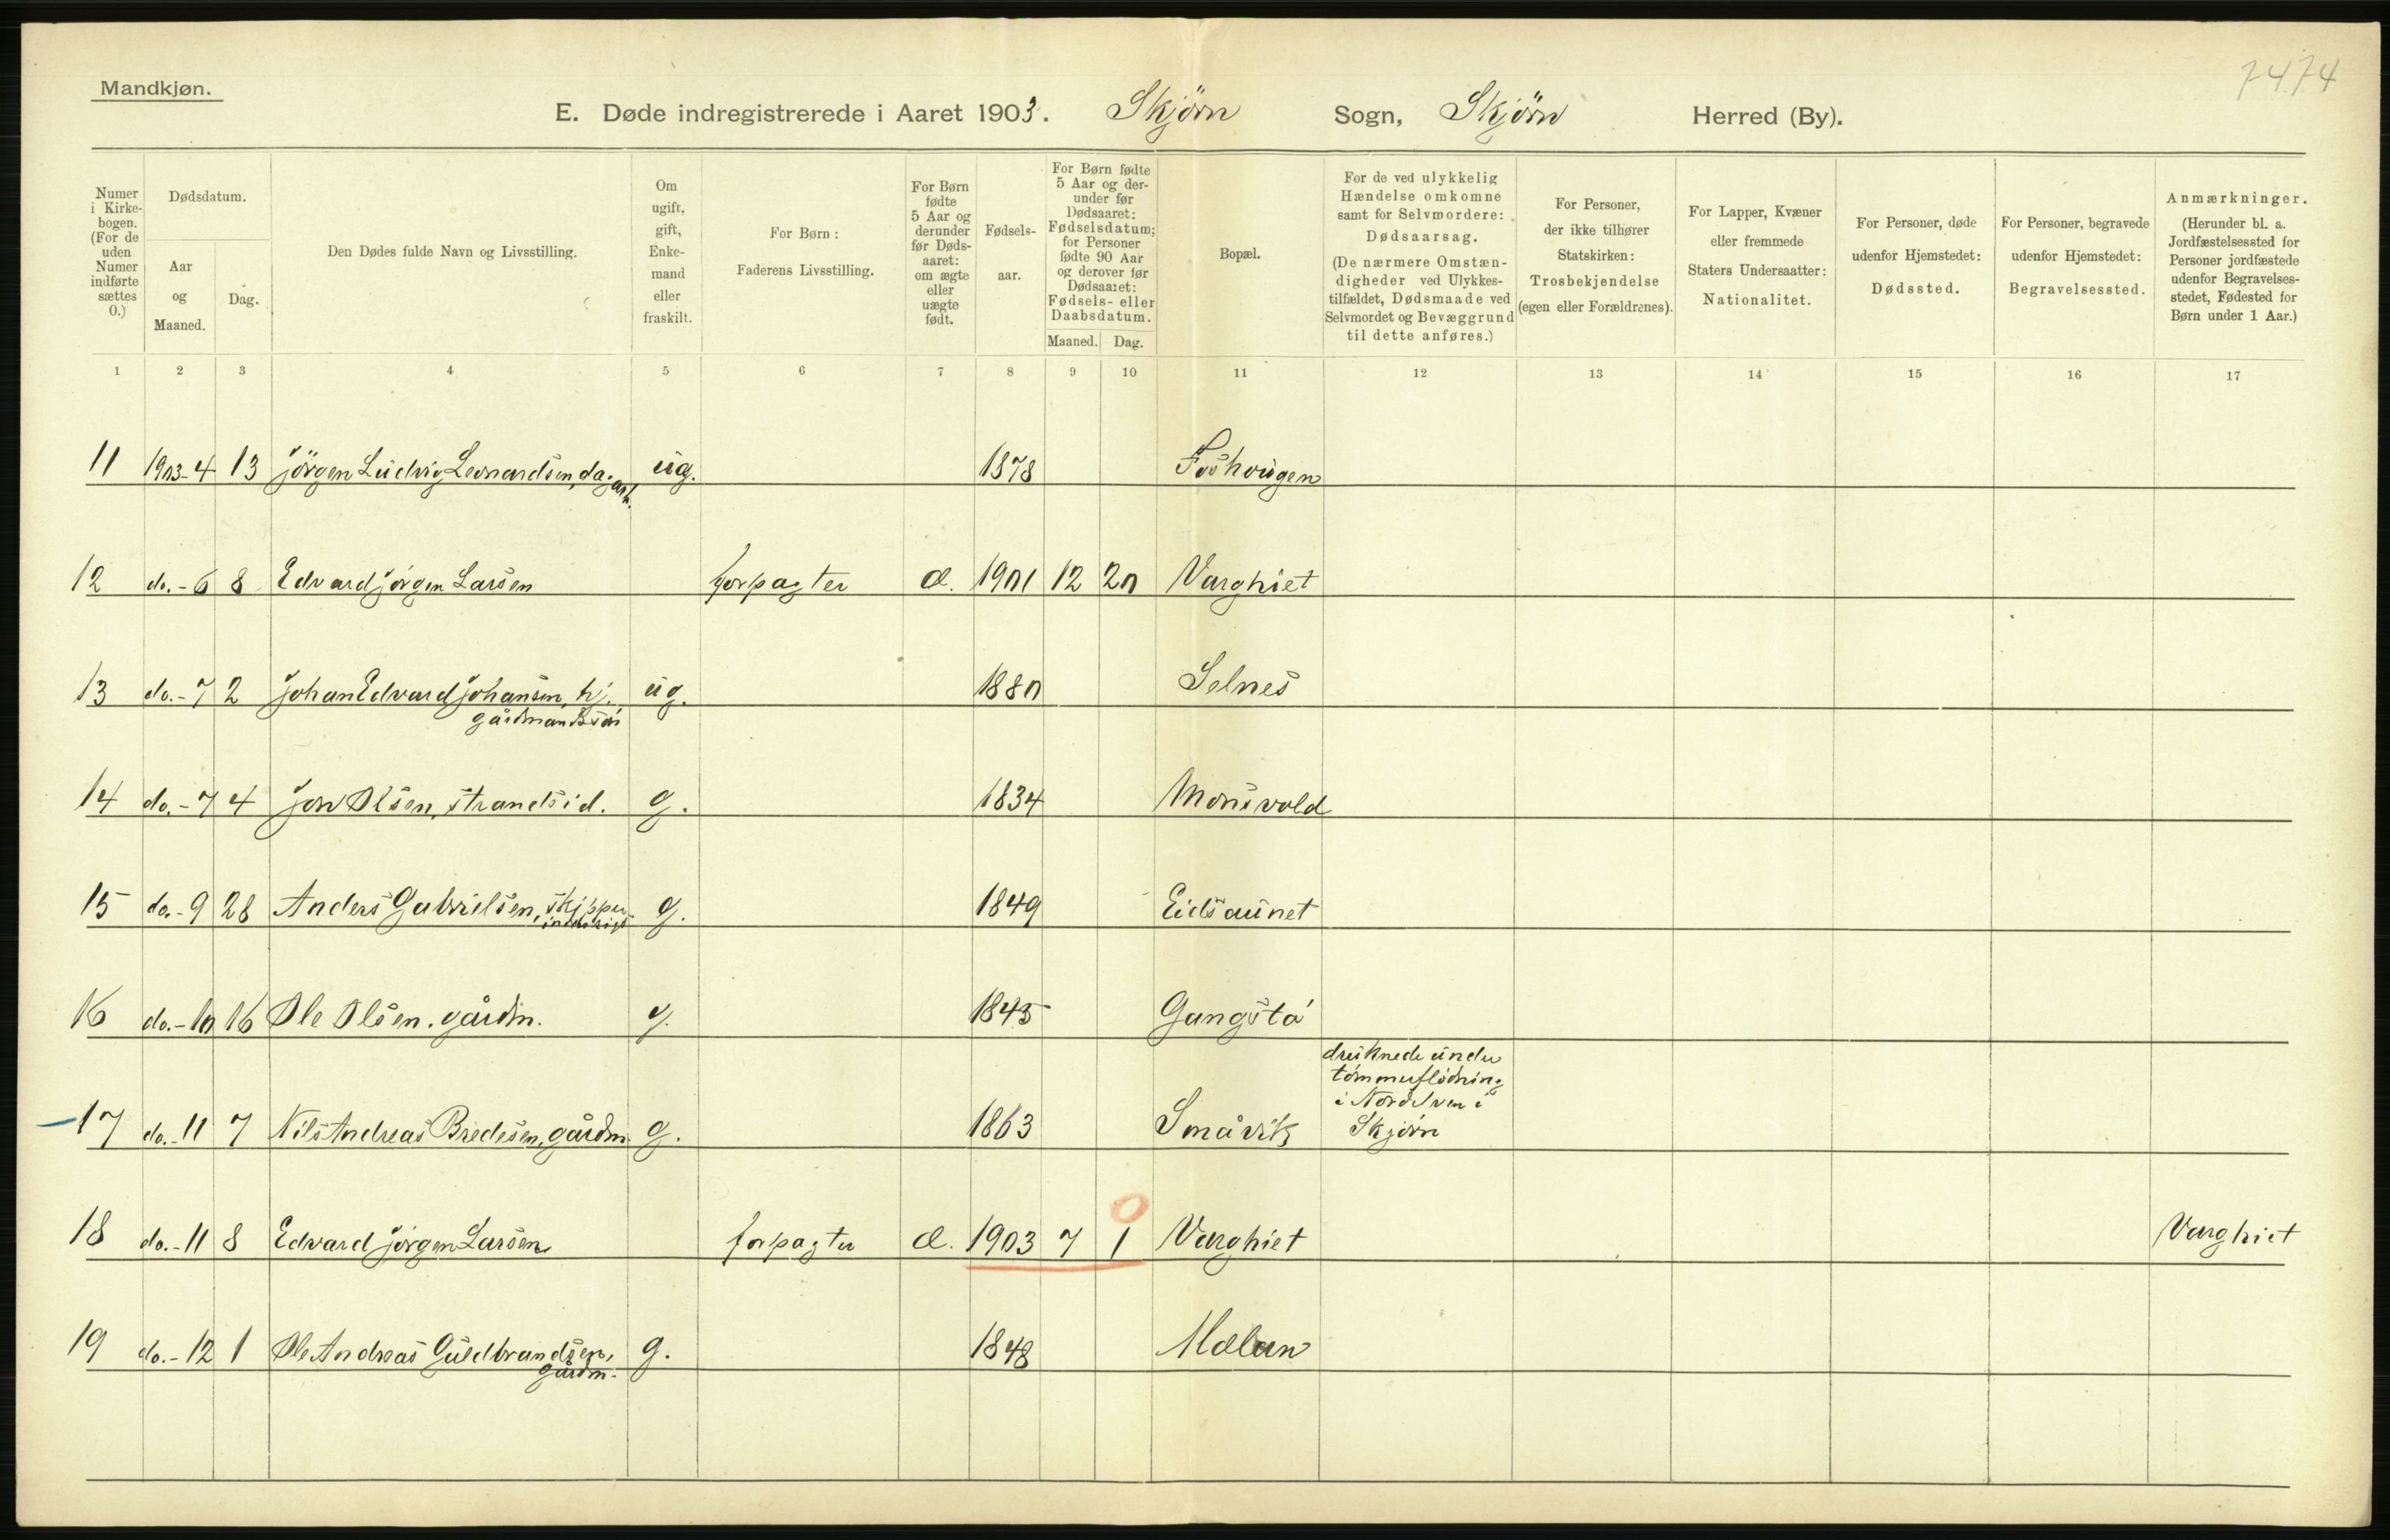 7474
Mandkjøn.
E. Døde indregistrerede i Aaret 1903. Skjörn Sogn, Skjörn Herred (By).
Numer i Kirkebogen. (For de uden Numer indførte sættes 0.)
Dødsdatum.
Aar og Maaned.
Dag.
Den Dødes fulde Navn og Livsstilling.
Om ugift, gift, Enkemand eller fraskilt.
For Børn: Faderens Livsstilling.
For Børn fødte 5 Aar og derunder før Dødsaaret: om ægte eller uægte født.
Fødselsaar.
For Børn fødte 5 Aar og derunder før Dødsaaret: Fødselsdatum; for Personer fødte 90 Aar og derover før Dødsaaret: Fødsels- eller Daabsdatum.
Maaned. Dag.
Bopæl.
For de ved ulykkelig Hændelse omkomne samt for Selvmordere: Dødsaarsag. (De nærmere Omstændigheder ved Ulykkestilfældet, Dødsmaade ved Selvmordet og Bevæggrund til dette anføres.)
For Personer, der ikke tilhører Statskirken: Trosbekjendelse (egen eller Forældrenes).
For Lapper, Kvæner eller fremmede Staters Undersaatter: Nationalitet.
For Personer, døde udenfor Hjemstedet: Dødssted.
For Personer, begravede udenfor Hjemstedet: Begravelsessted.
Anmærkninger. (Herunder bl. a. Jordfæstelsessted for Personer jordfæstede udenfor Begravelsesstedet, Fødested for Børn under 1 Aar.)
1 2 3 4 5 6 7 8 9 10 11 12 13 14 15 16 17
11 1903-4 13 Jörgen Ludvig Leonardsen, dagarb. ug. 1878 Foshougen
12 do.-6 8 Edvard Jörgen Larsen forpagter æ. 1901 12 20 Varghiet
13 do.-7 2 Johan Edvard Johansen, hj. ug. 1880 Selnes
gårdmandssön
14 do.-7 4 Jon Olsen, strandsid. g. 1834 Monsvold
15 do.-9 28 Anders Gabrielsen, skipper g. 1849 Eidsaunet
16 do.-10 16 Ole Olsen, gårdm. g. 1845 Gangstö
17 do.-11 7 Nils Andreas Bredesen, gårdm. g. 1863 Småvik druknede under
tömmerflödning
i Nordelven i
Skjörn
18 do.-11 8 Edvard Jörgen Larsen forpagter æ. 1903 7 1 0 Varghiet Varghiet
19 do.-12 1 Ole Andreas Guldbrandsen, g. 1848 Mælan
gårdm.